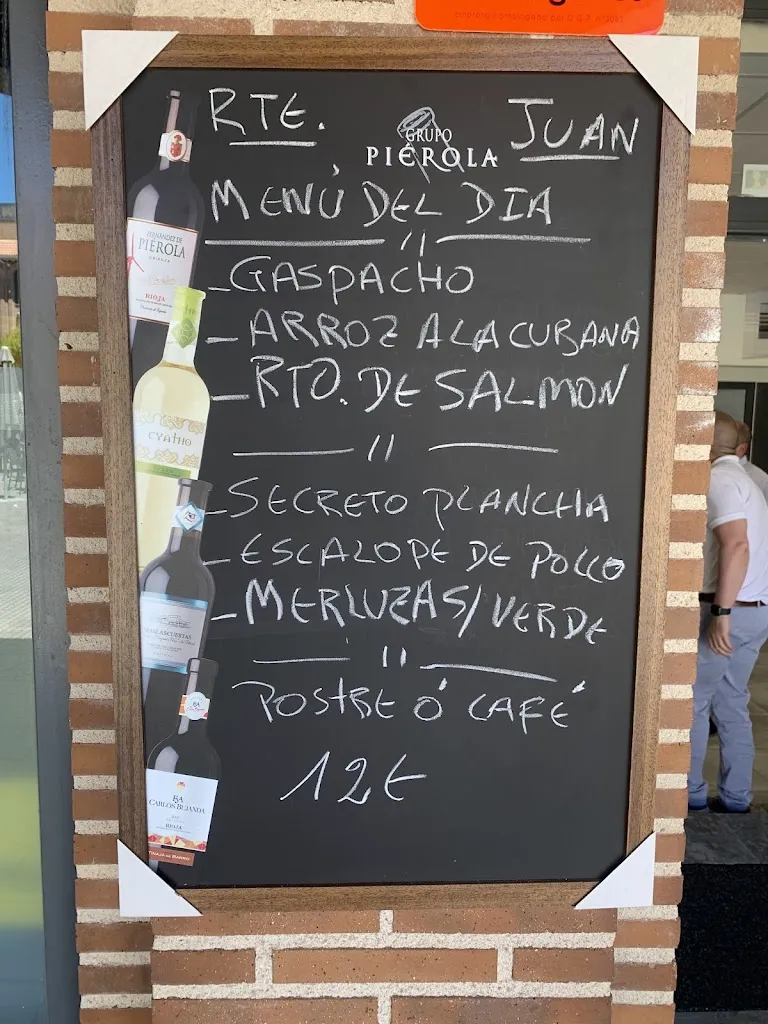 RTE.
GRUPO
PIÉROLA
JUAN
MENÚ DEL DIA
- GASPACHO
- ARROZ A LA CUBANA
- RTO. DE SALMON
- SECRETO PLANCHA
- ESCALOPE DE POLLO
- MERLUZA S/VERDE
POSTRE Ó CAFÉ
12€
FERNÁNDEZ DE
PIÉROLA
CRIANZA
RIOJA
CYATHO
CARLOS BUJANDA
RIOJA